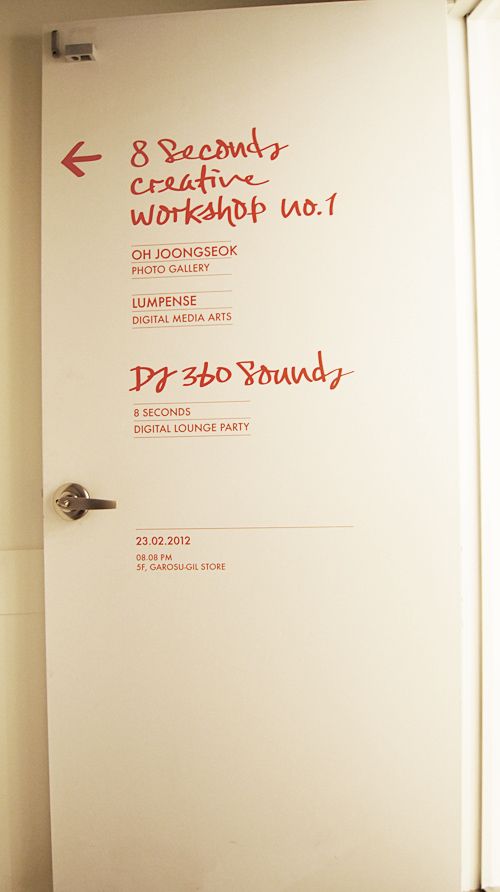 8 Seconds
creative
workshop no.1
OH JOONGSEOK
PHOTO GALLERY
LUMPENSE
DIGITAL MEDIA ARTS
DJ 360 Sounds
8 SECONDS
DIGITAL LOUNGE PARTY
23.02.2012
08.08 PM
5F, GAROSU-GIL STORE